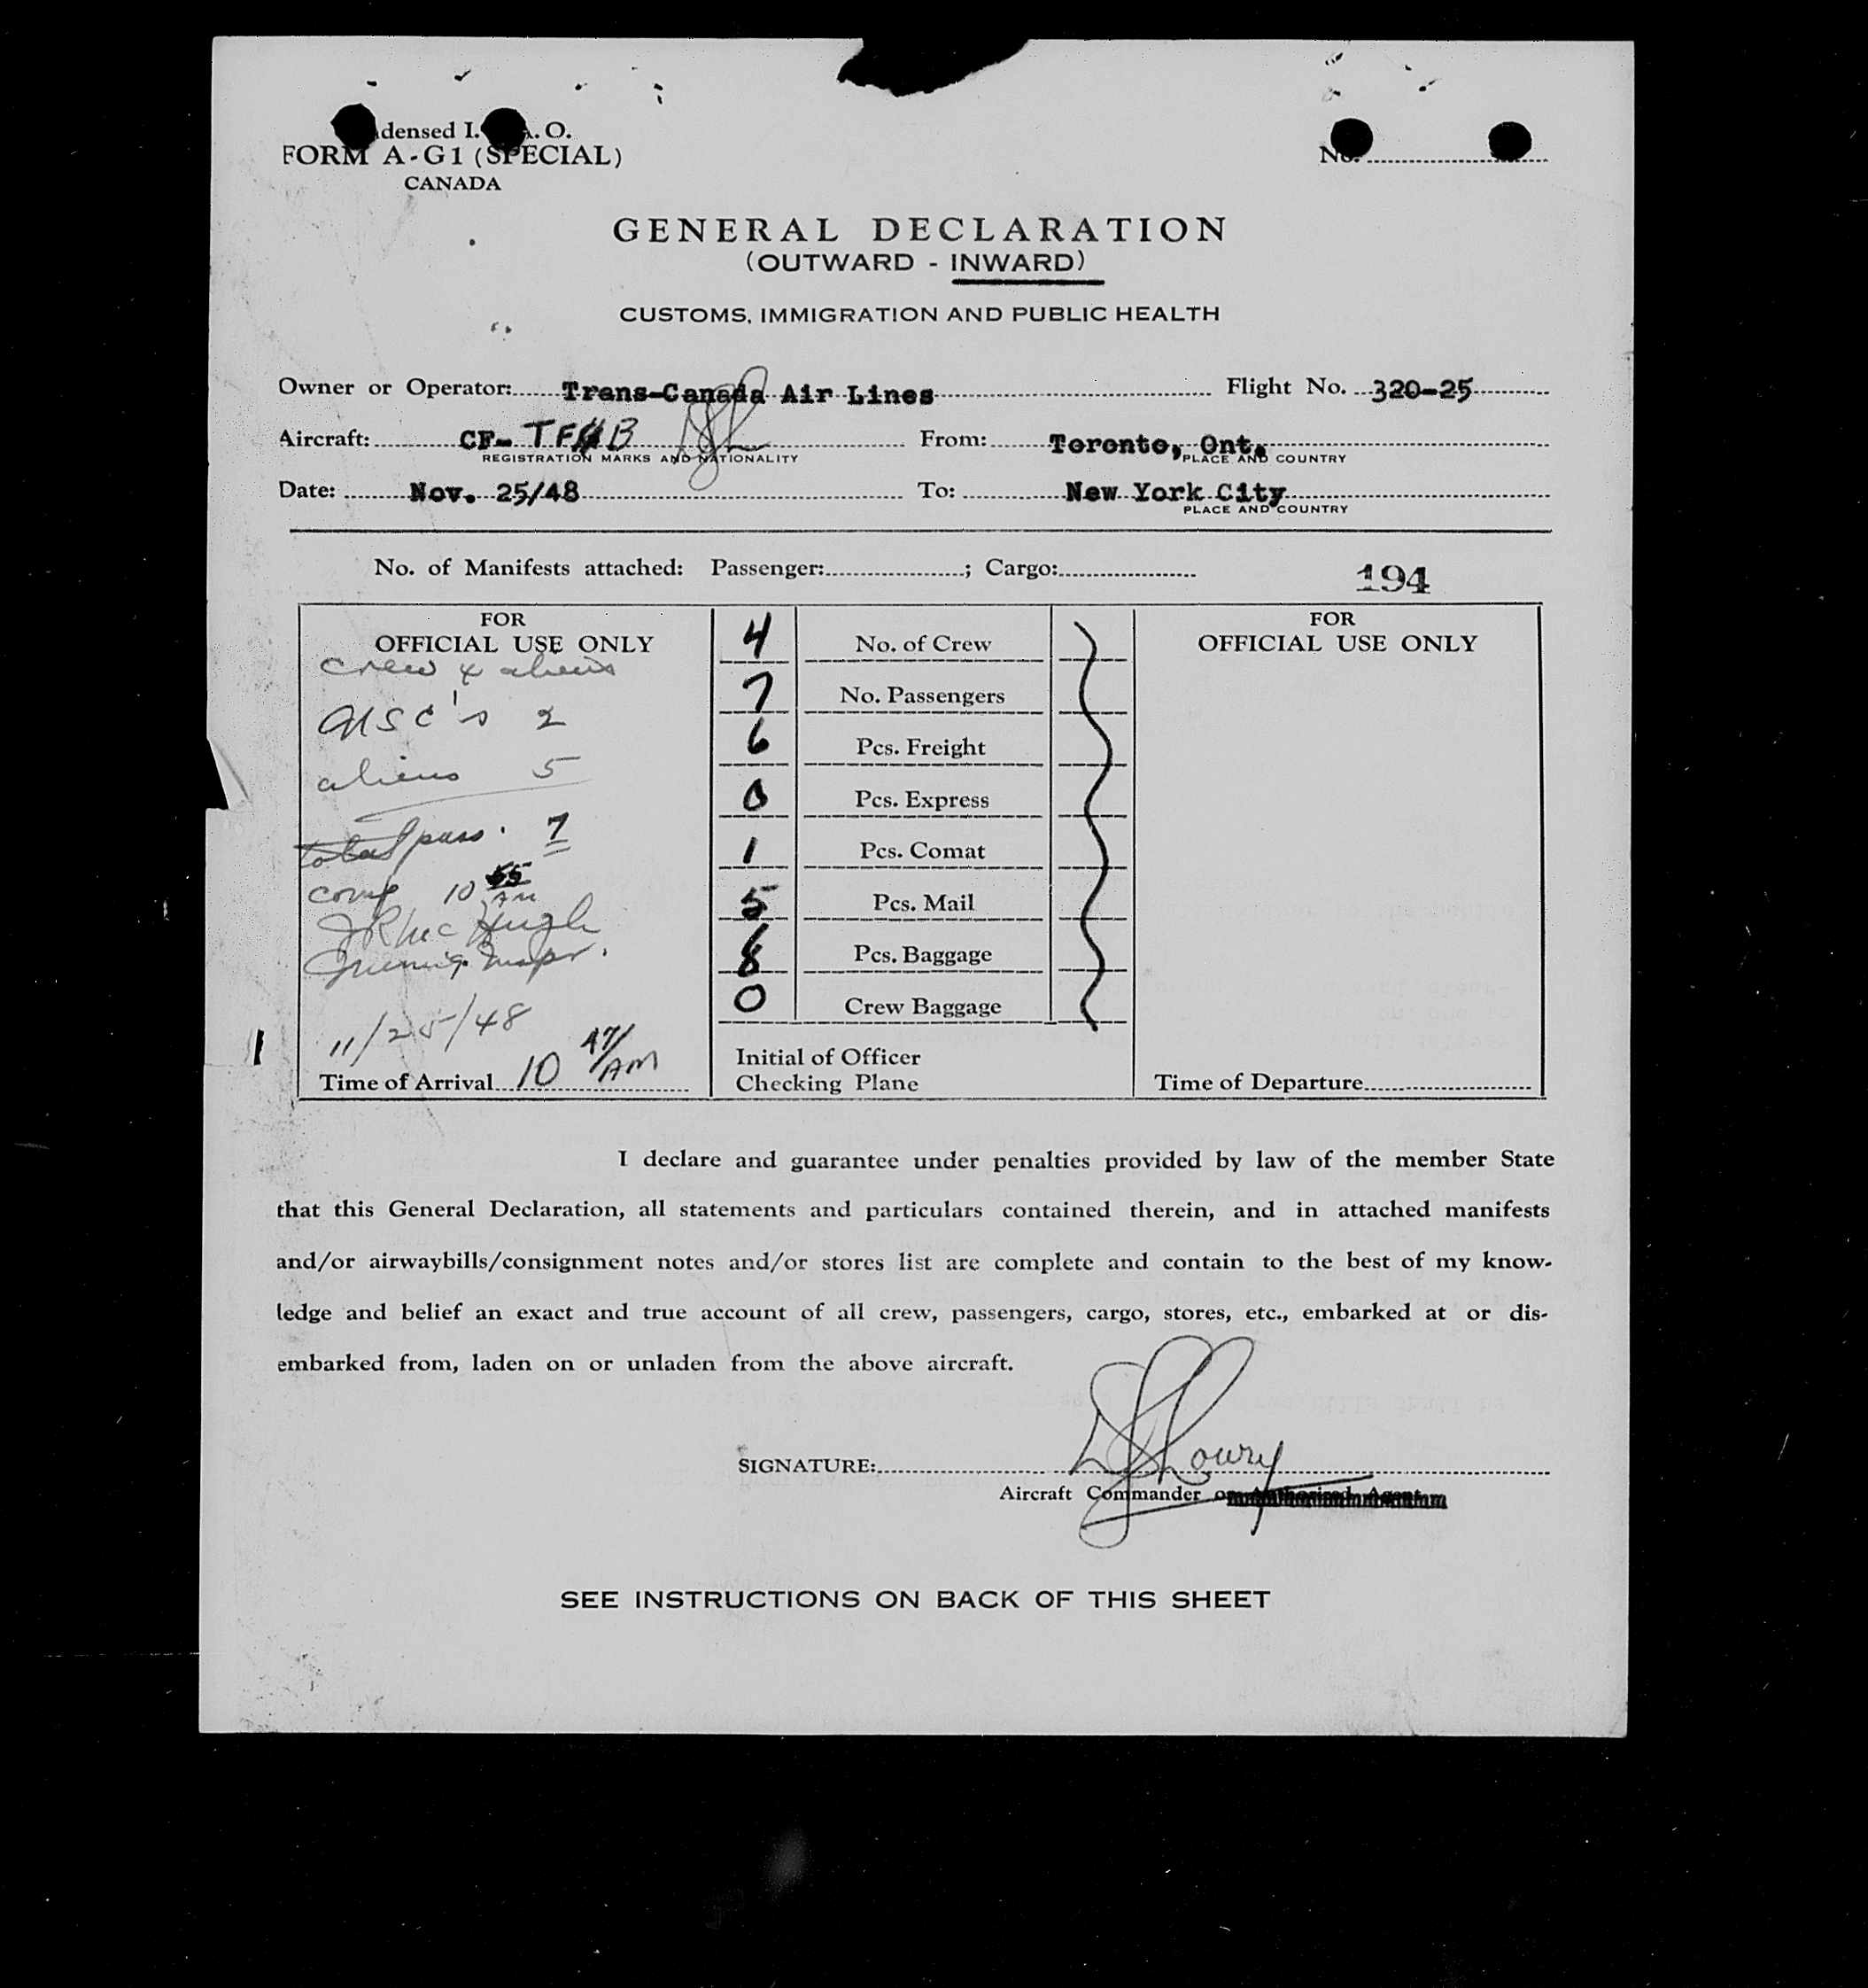 densed I. A. O.
FORM A-G1 (SPECIAL)
CANADA
No.
GENERAL DECLARATION
(OUTWARD - INWARD)
CUSTOMS, IMMIGRATION AND PUBLIC HEALTH
Owner or Operator: Trans-Canada Air Lines Flight No. 320-25
Aircraft: CF- TF B From: Toronto, Ont.
REGISTRATION MARKS AND NATIONALITY PLACE AND COUNTRY
Date: Nov. 25/48 To: New York City
PLACE AND COUNTRY
No. of Manifests attached: Passenger: ; Cargo:
194
FOR
OFFICIAL USE ONLY
crew 4 aliens
USC's 2
aliens 5
total pass. 7
comp 10 55 AM
JR McHugh
Immig. Inspr.
11/25/48
Time of Arrival 10 47/AM
4 No. of Crew
7 No. Passengers
6 Pcs. Freight
0 Pcs. Express
1 Pcs. Comat
5 Pcs. Mail
8 Pcs. Baggage
0 Crew Baggage
Initial of Officer
Checking Plane
FOR
OFFICIAL USE ONLY
Time of Departure
I declare and guarantee under penalties provided by law of the member State
that this General Declaration, all statements and particulars contained therein, and in attached manifests
and/or airwaybills/consignment notes and/or stores list are complete and contain to the best of my know-
ledge and belief an exact and true account of all crew, passengers, cargo, stores, etc., embarked at or dis-
embarked from, laden on or unladen from the above aircraft.
SIGNATURE: Lowry
Aircraft Commander or Authorized Agent
SEE INSTRUCTIONS ON BACK OF THIS SHEET